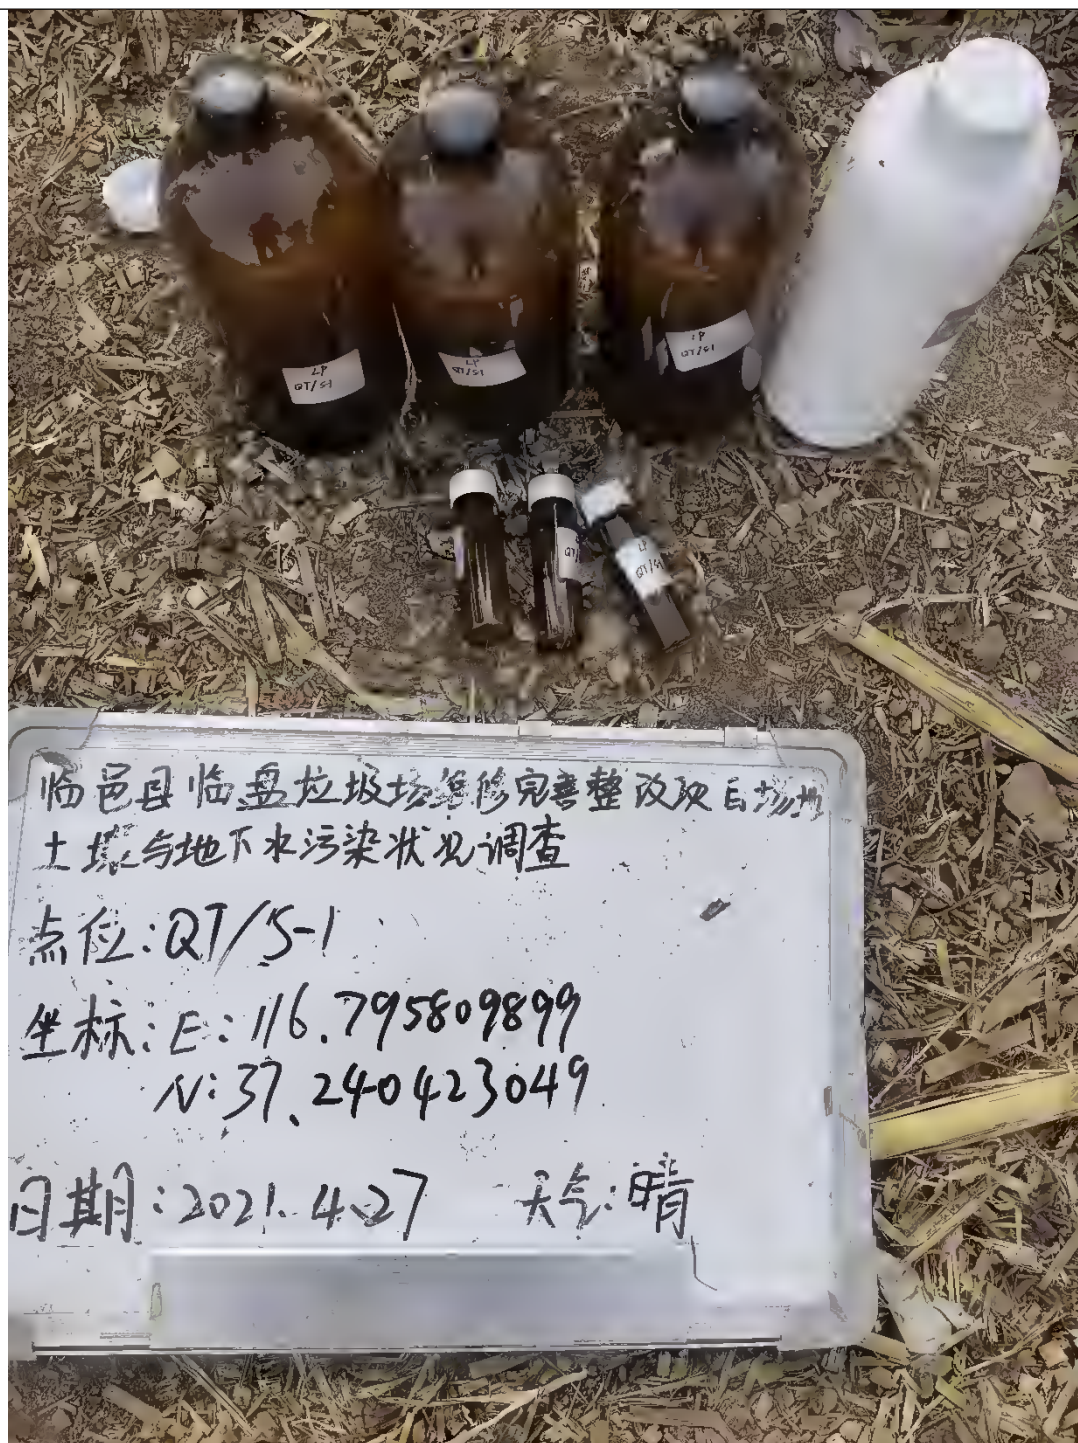 LP
QT/S1
LP
QT/S1
LP
QT/S1
QT/
LP
QT/S1
临邑县临盘垃圾场维修完善整改项目场地
土壤与地下水污染状况调查
点位:QT/S-1
坐标:E:116.795809899
N:37.240423049
日期:2021.4.27 天气:晴